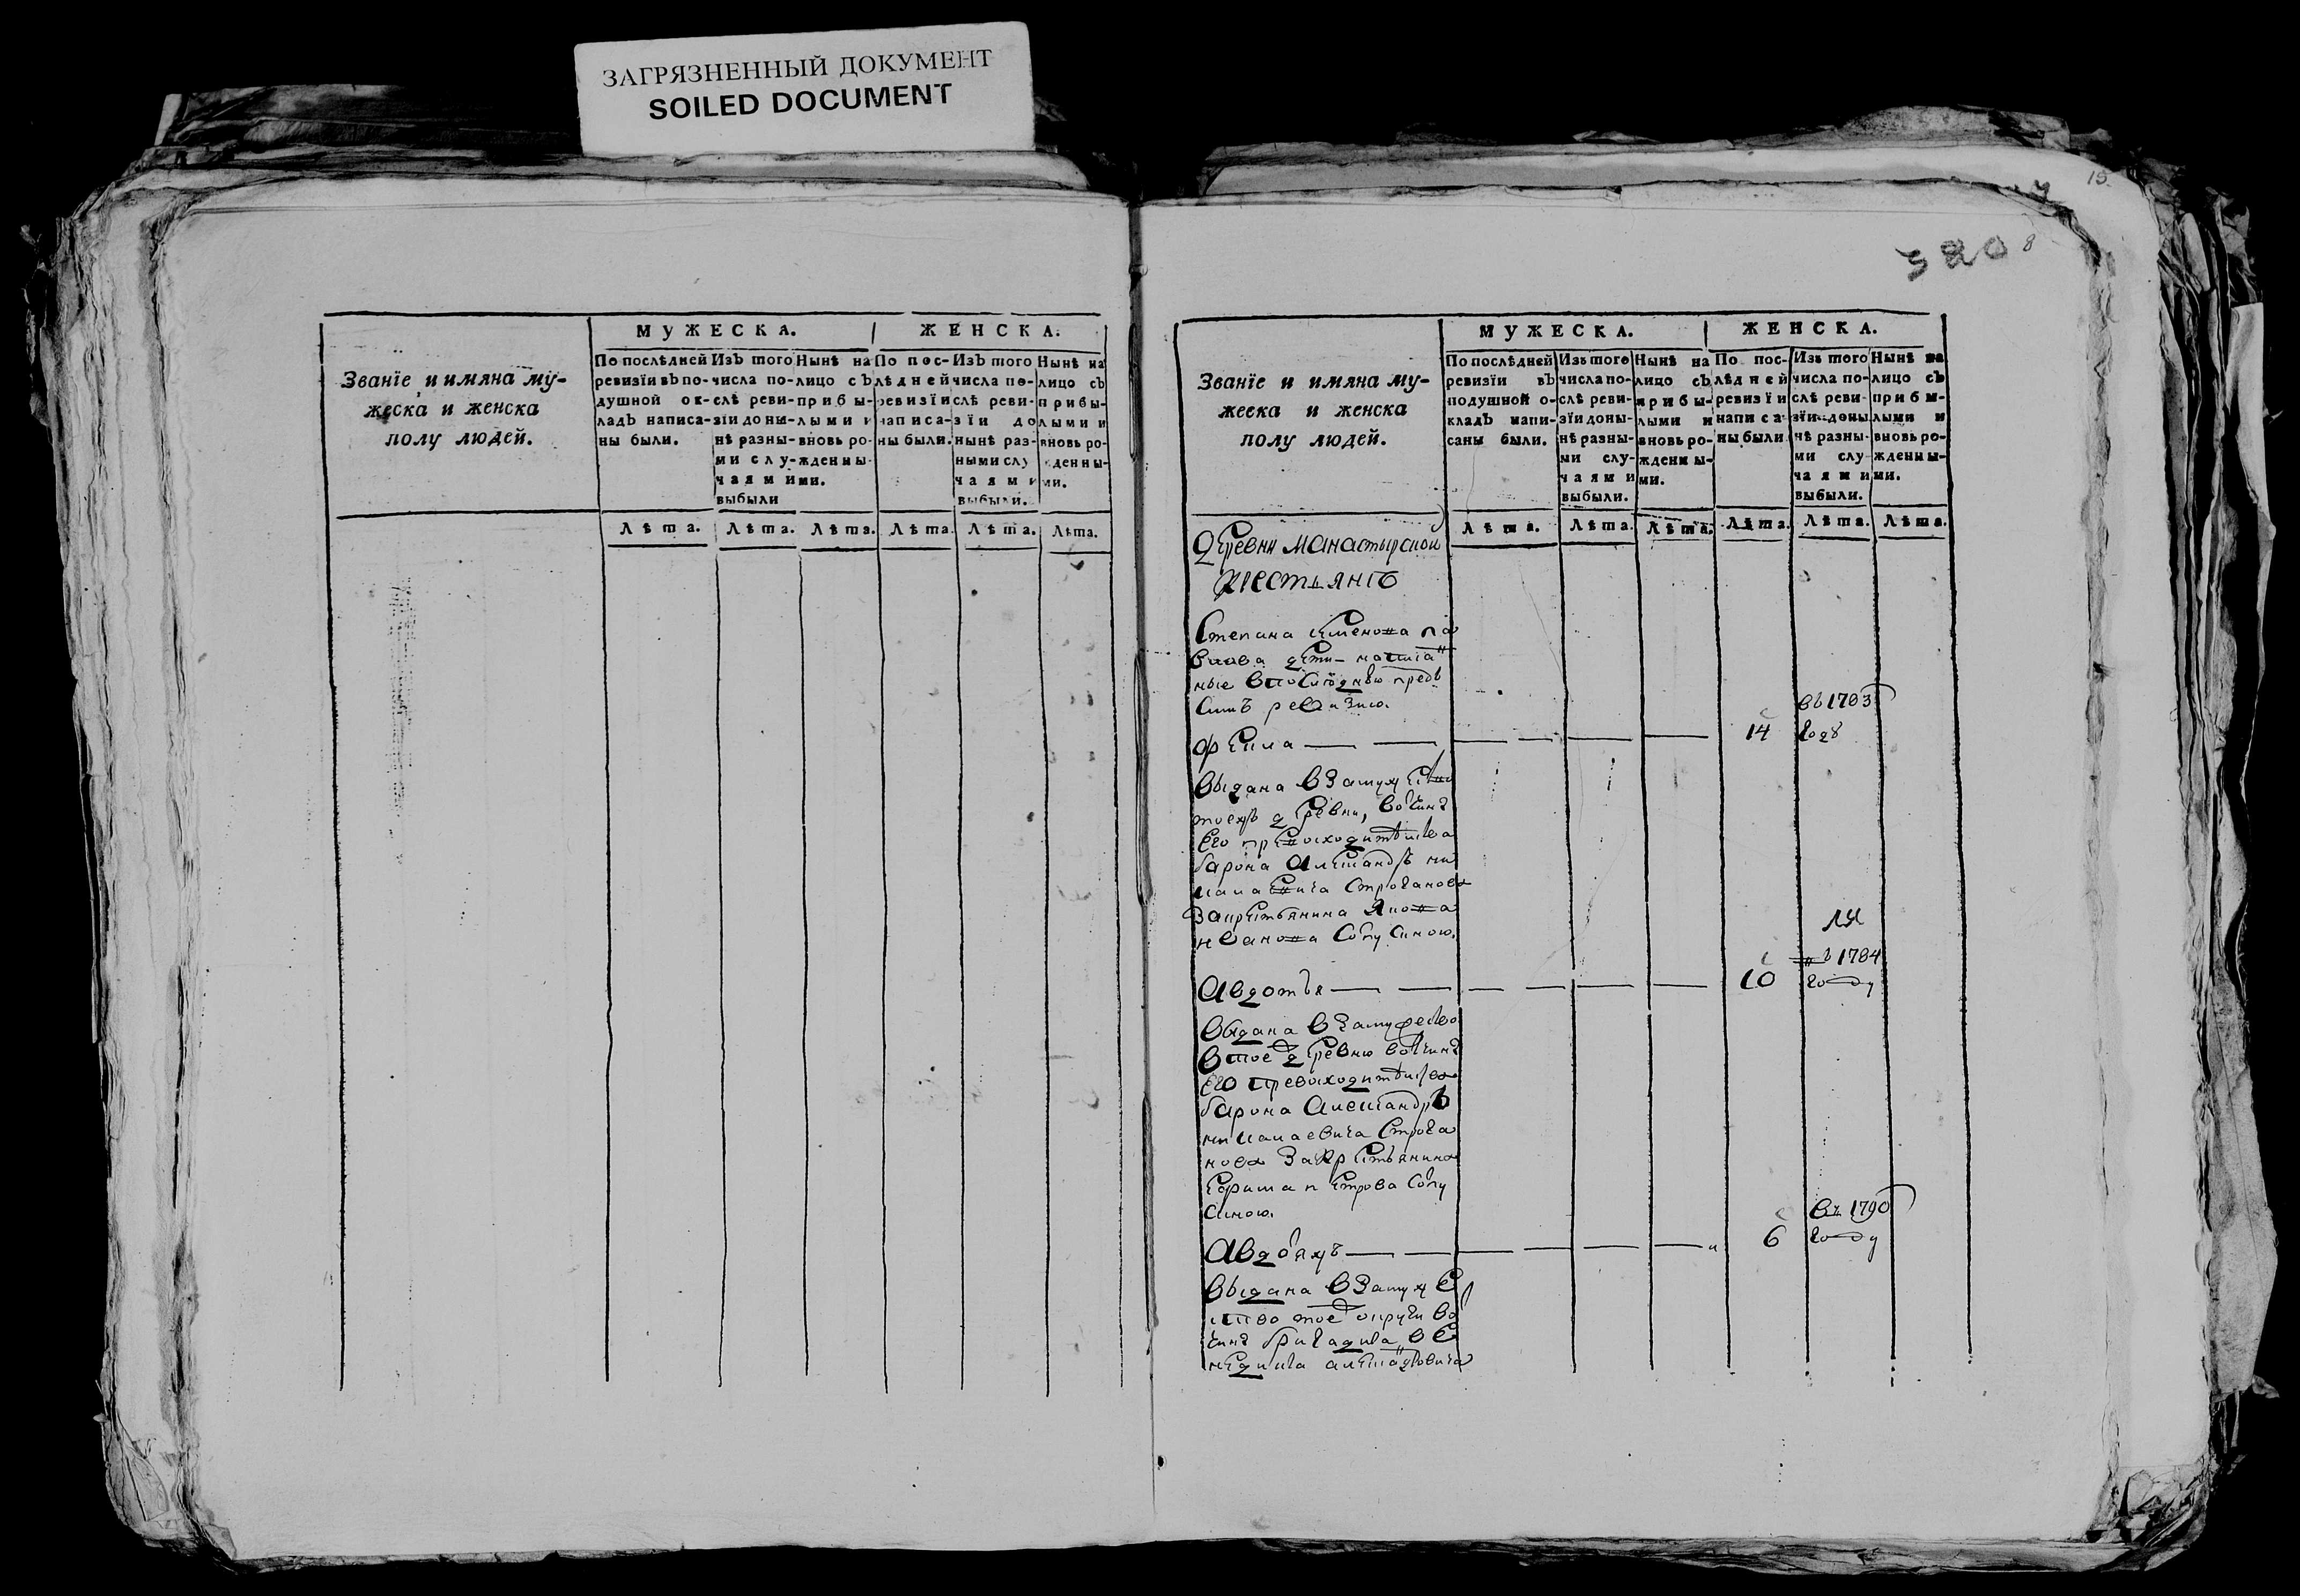 ЗАГРЯЗНЕННЫЙ ДОКУМЕНТ
SOILED DOCUMENT
Званїе и имяна му-
жеска и женска
полу людей.
МУЖЕСКА.
ЖЕНСКА.
По послѣдней
ревизїи въ по-
душной ок-
ладъ написа-
ны были.
Изъ того
числа по-
слѣ реви-
зїи доны-
нѣ разны-
ми слу-
чаями
выбыли
Нынѣ на
лицо съ
прибы-
лыми и
вновь ро-
жденны-
ми.
По пос-
лѣдней
ревизїи
написа-
ны были.
Изъ того
числа по-
слѣ реви-
зїи до
нынѣ раз-
ными слу
чаями
выбыли.
Нынѣ на
лицо съ
прибы-
лыми и
вновь ро-
жденны-
ми.
Лѣта. Лѣта. Лѣта. Лѣта. Лѣта. Лѣта.
15
3808
Званїе и имяна му-
жеска и женска
полу людей.
МУЖЕСКА.
ЖЕНСКА.
По послѣдней
ревизїи въ
подушной о-
кладъ напи-
саны были.
Изъ того
числа по-
слѣ реви-
зїи доны-
нѣ разны-
ми слу-
чаями
выбыли.
Нынѣ на
лицо съ
прибы-
лыми и
вновь ро-
жденны-
ми.
По пос-
лѣдней
ревизїи
написа-
ны были
Изъ того
числа по-
слѣ реви-
зїи доны
нѣ разны-
ми слу-
чаями
выбыли.
Нынѣ на
лицо съ
прибы-
лыми и
вновь ро-
жденны-
ми.
Лѣта. Лѣта. Лѣта. Лѣта. Лѣта. Лѣта.
деревни манастырской
крестьянъ
Степана Семенова па
влова дети написа
ные впоследнюю предъ
симъ ревизию.
въ 1783
фекла 14 году
выдана взамужеств
тоежъ деревни, вотчинѣ
его превосходителства
барона александра ни
колаевича строганова
закрестьянина якова
иванова
въ 1784
Авдотья 10 году
выдана взамужество
втое деревню вотчинѣ
его превосходителства
барона александра
николаевича строга
нова закрестьянина
ефима петрова
въ 1790
Авдотья жъ 6 году
выдана взамуже
ство тое округи во
чинѣ бригадира все